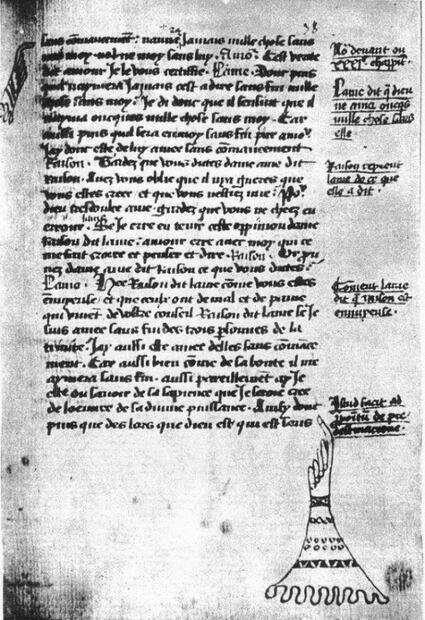 38
sans cōmancement: Jamais nulle chose sans
moy ne moy sans luy. Amo'. Cest verite
dit amour Je le vous certiffie. Lame. Donc puis
quil naymera Jamais cest a dire sans fin nulle
chose sans moy. Je di donc que il sensuit que il
nayma oncques nulle chose sans moy. Car
aussi puis quil sera en moy sans fin par amo'
Jay donc este de luy amee sans cōmancement
Raison. Gardez que vous dites dame ame dit
raison. Avez vous oblie que il nya gueres que
vous estes creee et que vous nestiez mie. Ho.
dieu tresdoulce ame gardez que vous ne cheez en
erreur. Se Je erre en tenir ceste oppinion dame
Raison dit lame: amour erre avec moy qui ce
me fait croire et penser et dire. Raison. Or prou
vez dame ame dit Raison ce que vous dittes.
Lame. Hee Raison dit lame cōme vous estes
ennuyeuse et que ceulx ont de mal et de paine
qui vivent de vostre conseil. Raison dit lame se Je
suis amee sans fin des trois psonnes de la
trinite. Jay aussi este amee delles sans cōmance
ment. Car aussi bien cōme de sa bonte il me
aymera sans fin. aussi pareillement ay Je
este ou savoir de sa sapience que Je seroie cree
de loeuvre de sa divine puissance. Ainsy dont
puis que des lors que dieu est qui est sens
devant ou
chappit'
Lame dit q̄ dieu
ne ama oncqs
nulle chose sans
elle
Raison reprent
lame de ce que
elle a dit.
Coment lame
dit q̄ Raison est
ennuyeuse.
Istud facit ad
de pre
destinacione.